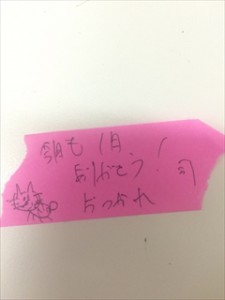 今日も1日、
ありがとう！
おつかれ